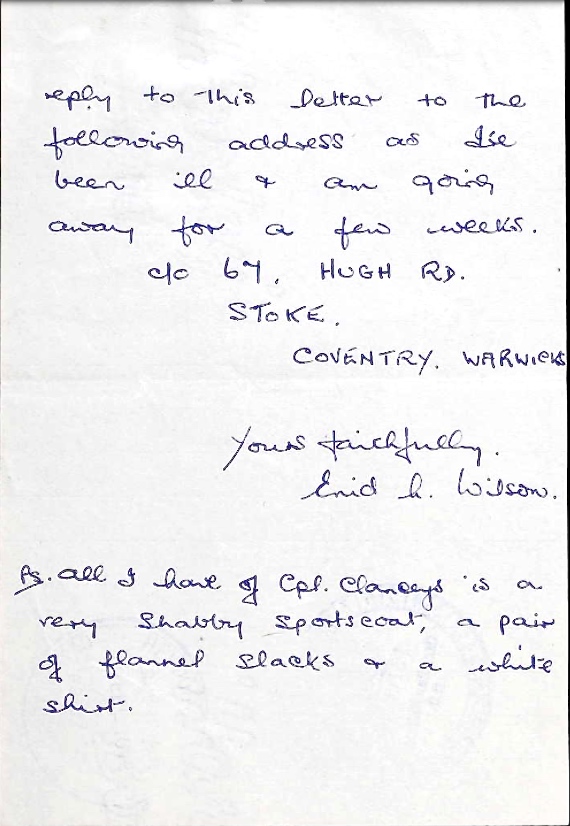 reply to this letter to the
following address as I've
been ill & am going
away for a few weeks.
c/o 67, HUGH RD.
STOKE.
COVENTRY. WARWICKS
Yours faithfully.
Enid h. Wilson.
Ps. all I have of Cpl. Clanceys is a
very shabby sportscoat, a pair
of flannel slacks & a white
shirt.